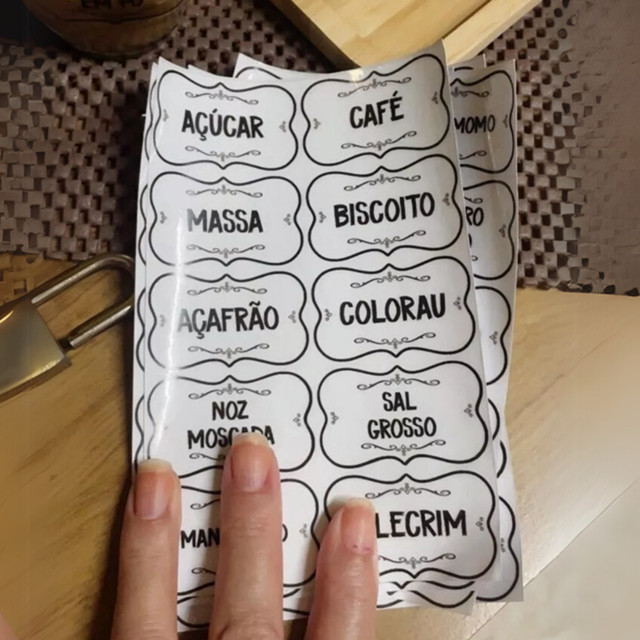 AÇÚCAR
CAFÉ
MASSA
BISCOITO
AÇAFRÃO
COLORAU
NOZ
MOSCADA
SAL
GROSSO
LECRIM
MOMO
RO
EM PÓ